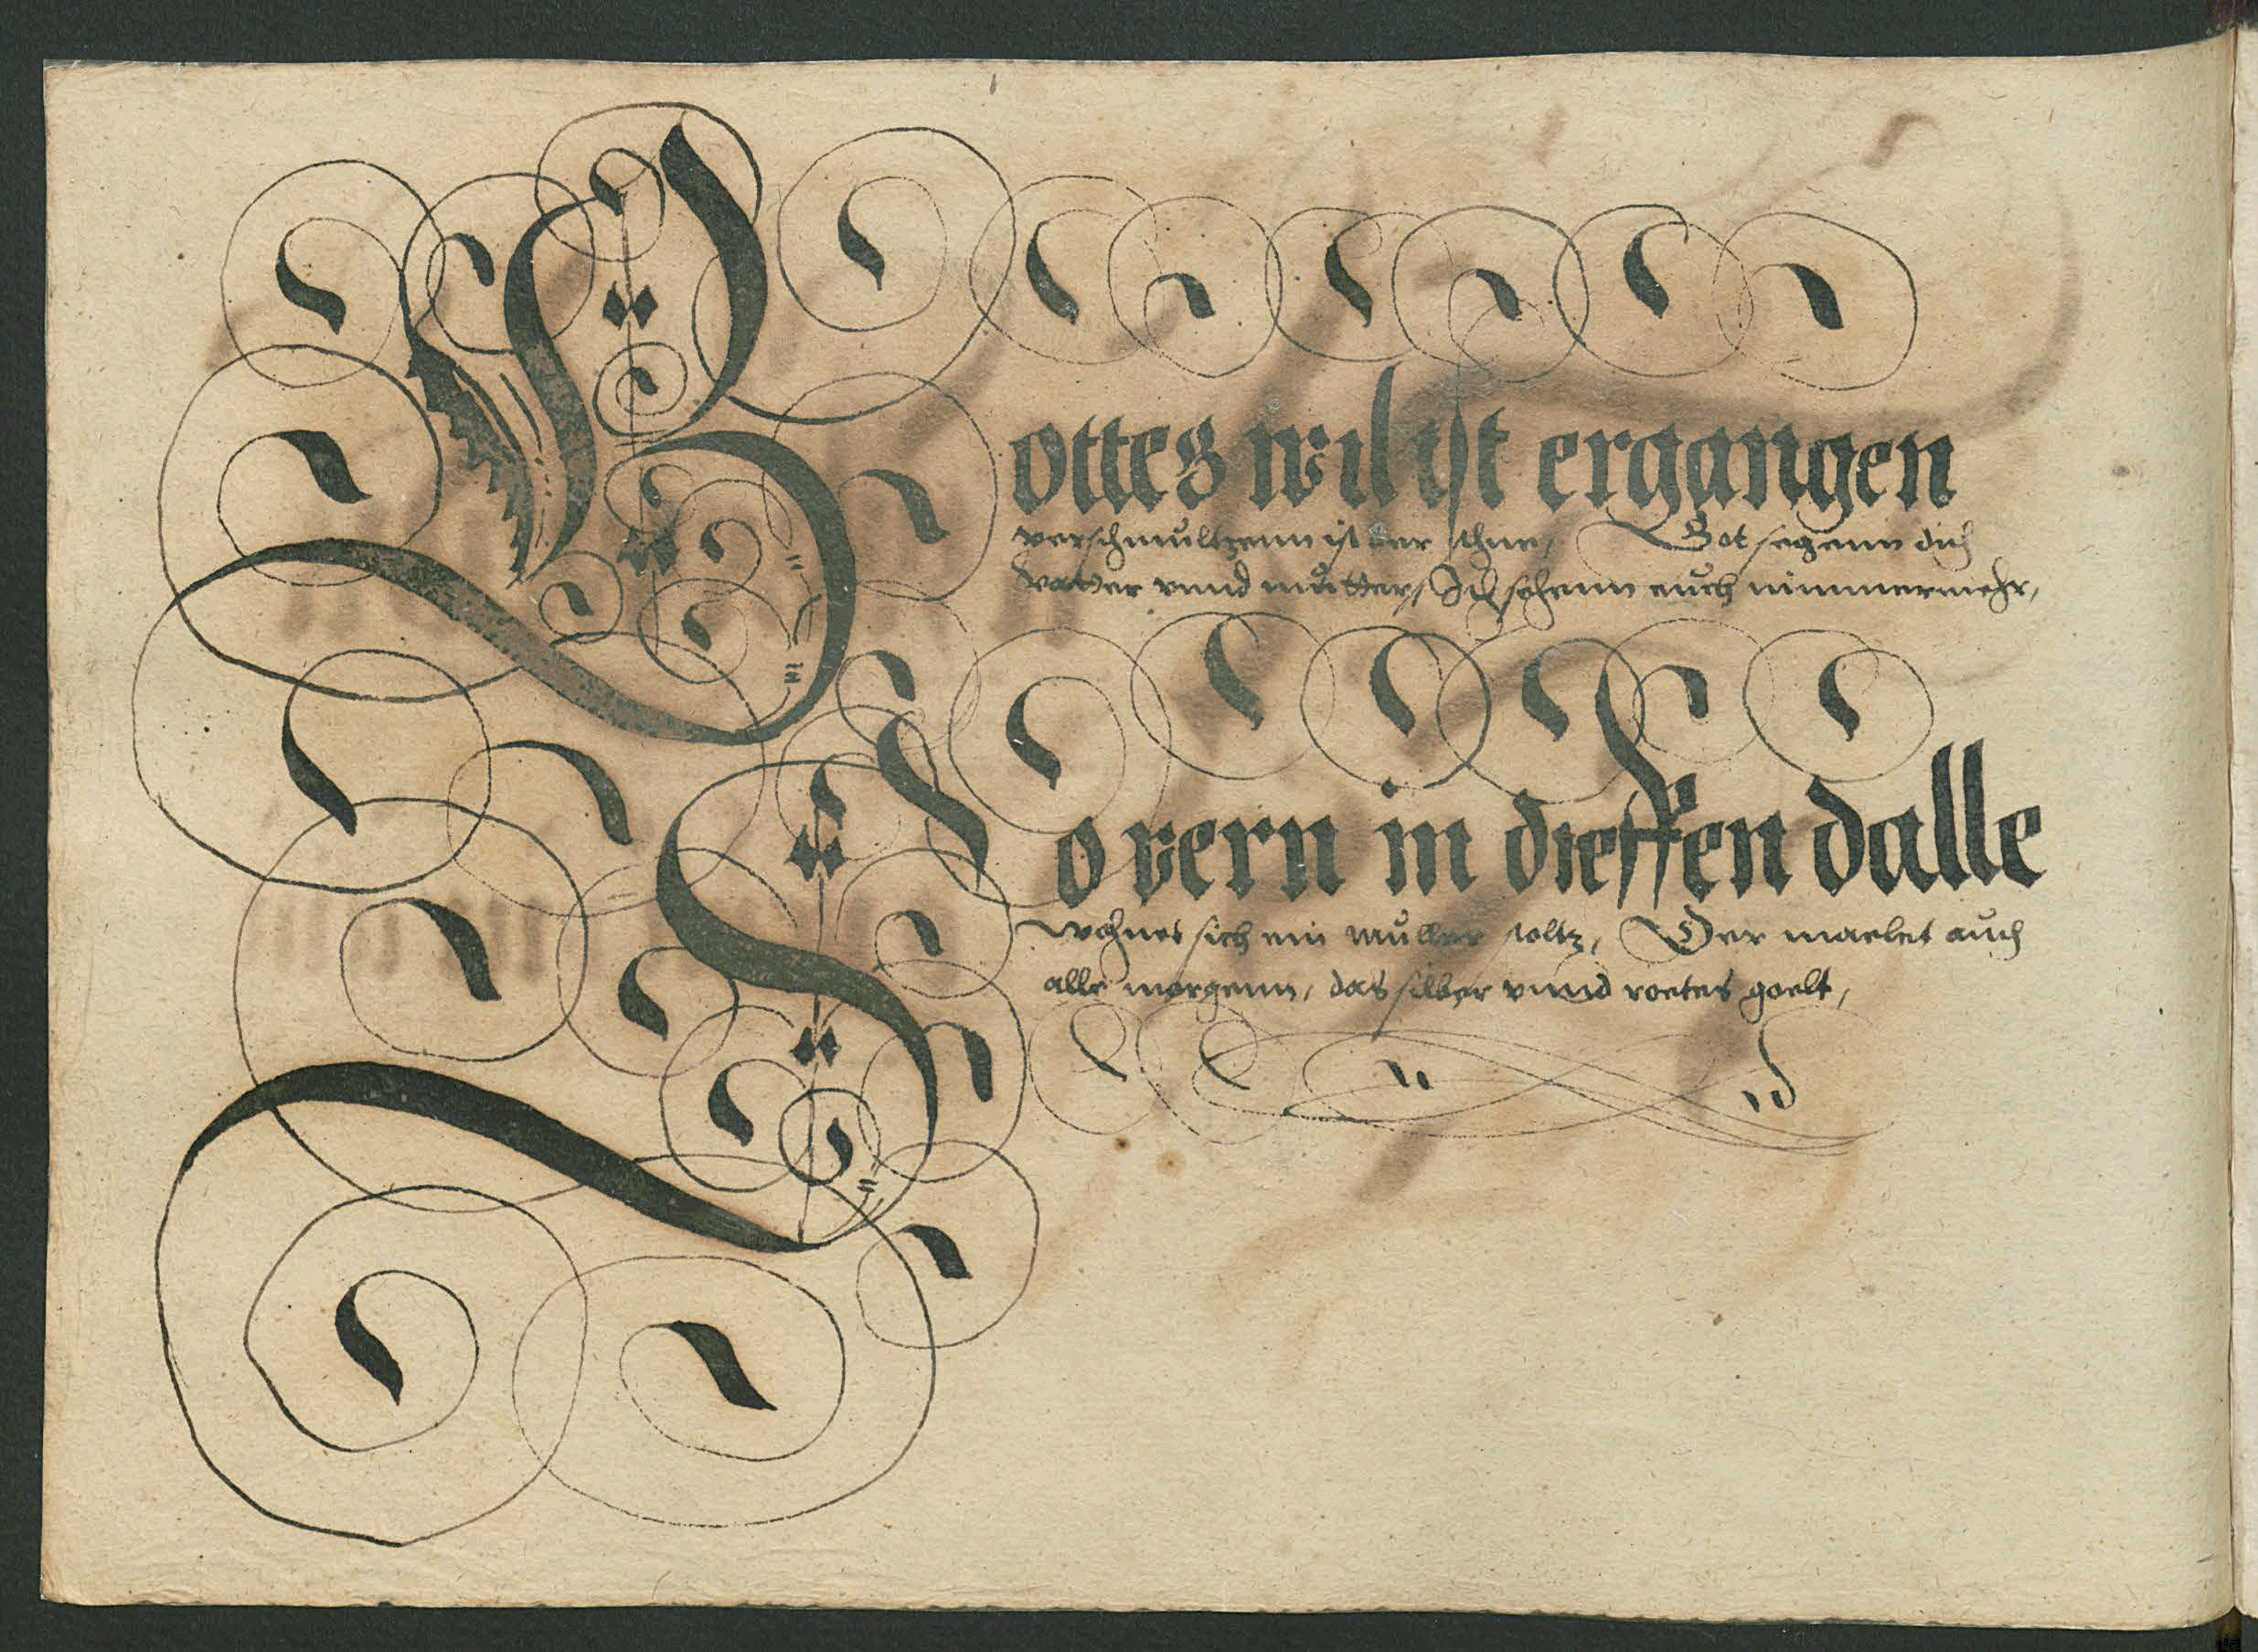 Gottes wil ist ergangen
verschmultzenn ist der schne, Got segenn dich
vatter vnnd mutter, Ich sehenn euch nimmermehr,
So vern in dieffen dalle
wohnet sich ein muller stoltz, Der maelet auch
alle morgenn, das silber vnnd roetes goelt,